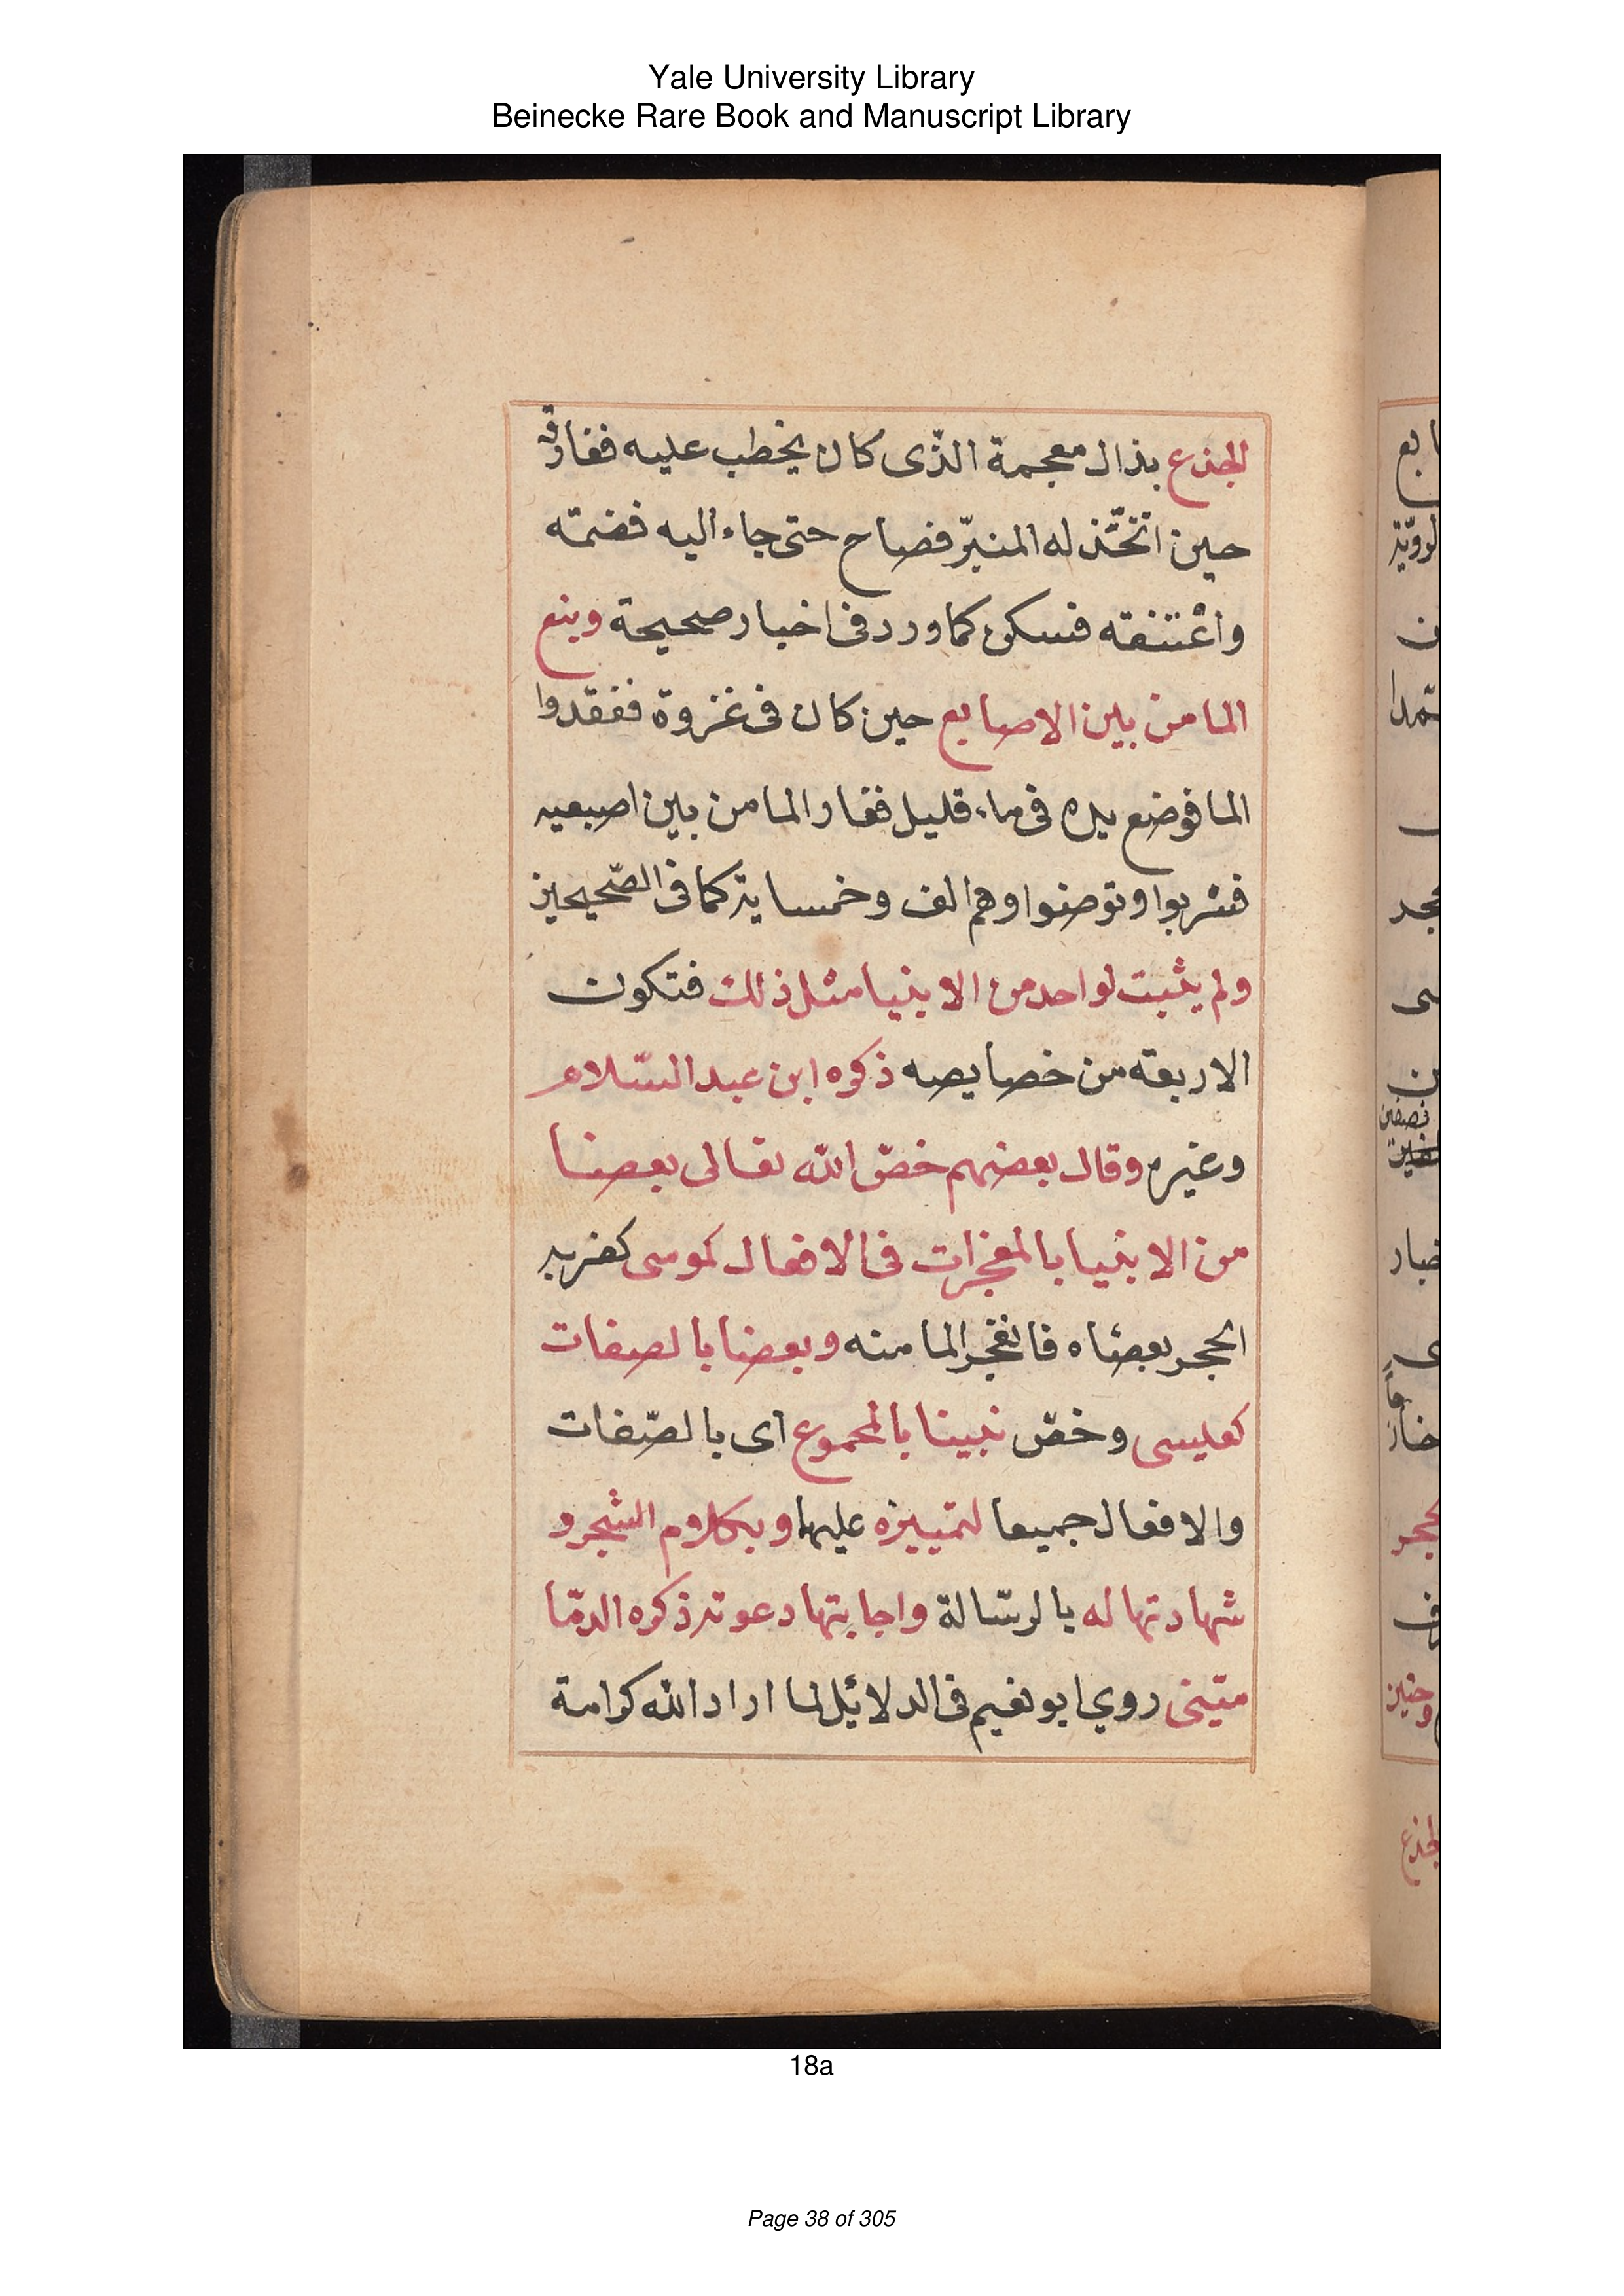 Yale University Library
Beinecke Rare Book and Manuscript Library
الجذع بذال معجمة الذّى كان يخطب عليه ففارقه
حين اتخّذ له المنبرّ فصاح حتى جاء اليه فضمته
واعْتنقته فسكن كما ورد فى اخبار صحيحة وبنع
الما من بين الاصابع حين كان فى غزوة ففقدوا
الما فوضع يده فى ماء قليل ففار الما من بين اصبعيه
فشربوا وتوضوا وهم الف وخمساية كما فى الصّحيحين
ولم يثبت لواحد من الانبيا مثل ذلك فتكون
الاربعة من خصايصه ذكره ابن عبد السّلام
وغيره وقال بعضهم خصّ الله تعالى بعضا
من الانبيا بالمعجزات فى الافعال كموسى كضربه
الحجر بعصاه فانفجر الما منه وبعضا بالصفات
كعيسى وخصّ نبينا بالمجموع اى بالصّفات
والافعال جميعا لتمييزه عليها وبكلام الشجر و
شهادتها له بالرسّالة واجابتها دعوته ذكره الدمّا
ميّنى روي ابو نعيم فى الدلائل لما اراد الله كرامة
18a
Page 38 of 305